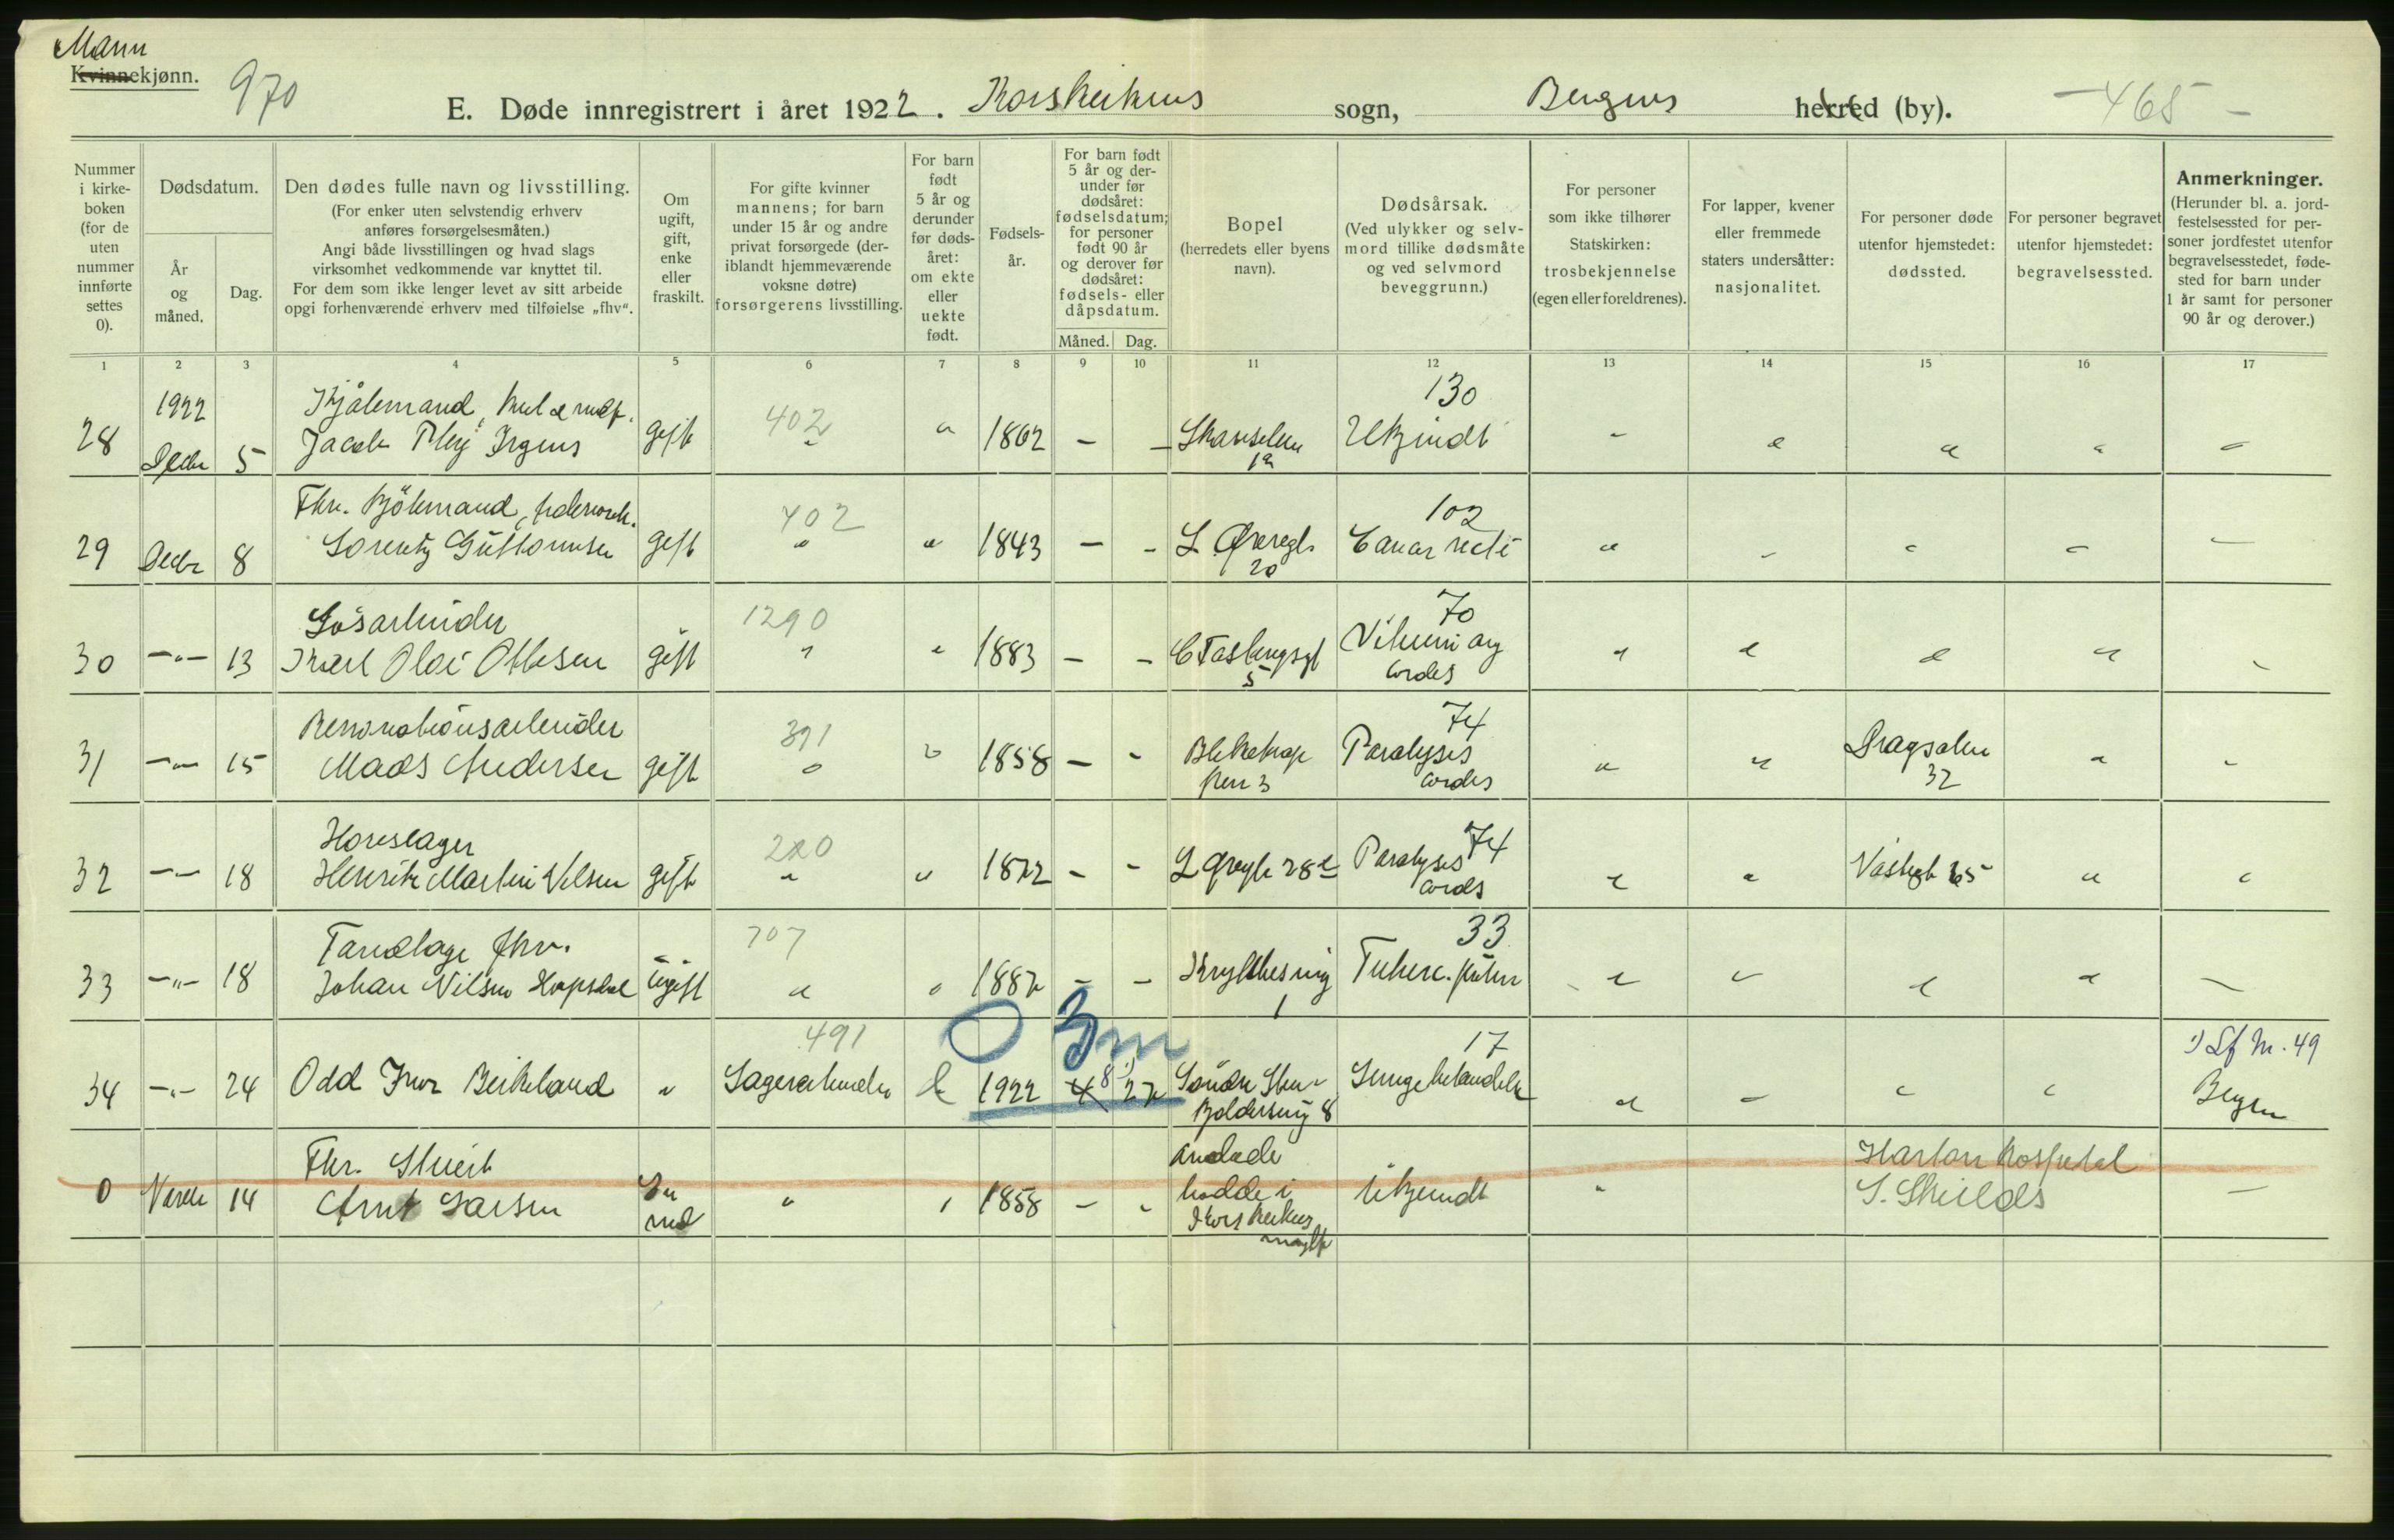 Mann
Kvinnekjønn.
970
E. Døde innregistrert i året 1922. Korskirkens sogn, Bergens herred (by).
-465-
Nummer i kirkeboken (for de uten nummer innførte settes 0).
Dødsdatum.
År og måned.
Dag.
Den dødes fulle navn og livsstilling.
(For enker uten selvstendig erhverv
anføres forsørgelsesmåten.)
Angi både livsstillingen og hvad slags
virksomhet vedkommende var knyttet til.
For dem som ikke lenger levet av sitt arbeide
opgi forhenværende erhverv med tilføielse „fhv“.
Om ugift, gift, enke eller fraskilt.
For gifte kvinner
mannens; for barn
under 15 år og andre
privat forsørgede (der-
iblandt hjemmeværende
voksne døtre)
forsørgerens livsstilling.
For barn
født
5 år og
derunder
før døds-
året:
om ekte
eller
uekte
født.
Fødsels-
år.
For barn født
5 år og der-
under før
dødsåret:
fødselsdatum;
for personer
født 90 år
og derover før
dødsåret:
fødsels- eller
dåpsdatum.
Måned. Dag.
Bopel
(herredets eller byens
navn).
Dødsårsak.
(Ved ulykker og selv-
mord tillike dødsmåte
og ved selvmord
beveggrunn.)
For personer
som ikke tilhører
Statskirken:
trosbekjennelse
(egen eller foreldrenes).
For lapper, kvener
eller fremmede
staters undersåtter:
nasjonalitet.
For personer døde
utenfor hjemstedet:
dødssted.
For personer begravet
utenfor hjemstedet:
begravelsessted.
Anmerkninger.
(Herunder bl. a. jord-
festelsessted for per-
soner jordfestet utenfor
begravelsesstedet, føde-
sted for barn under
1 år samt for personer
90 år og derover.)
1 2 3 4 5 6 7 8 9 10 11 12 13 14 15 16 17
1922 Kjøbmand, 402 130
28 Decbr 5 Jacob Irgens gift " " 1862 - - Skanselien 12 Ukjendt
Fhv. Kjöbmand, 402 102
29 Decbr 8 Lorentz Guttormsen gift " " 1843 - - L. Øvregt 20 Cancer recti
Løsarbeider 1290 70
30 -"- 13 Karl Olai Ottesen gift " " 1883 - - 5 Vitium org cordis
Renovationsarbeider 391 74
31 -"- 15 Mads Andersen gift " " 1858 - - 3 Paralysis cordis Dragsalm 32
Hovslager 220 74
32 -"- 18 Henrik Martin Nilsen gift " " 1872 - - L Øvregt 28 Paralysis cordis 65
Tandlæge fhv. 707 33
33 -"- 18 Johan Nilsen Hopsdal ugift " " 1882 - - 1 Tuberc. pulm
0 3m
491 17 1) Lf Nr. 49
34 -"- 24 Odd Ivar Birkeland " Sagarbeider 1922 4 8 22 Söndre 8 Lungebetændelse Bergen
Fhv. Skibsr
0 Novbr 14 Arnt Larsen " " 1858 - - hadde i Korskirkens Ukjendt Harton Hospital
S. Shields